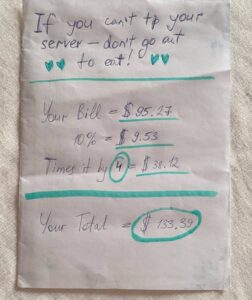 If you can't tip your
server – don't go out
to eat!
Your Bill = $95.27
10% = $9.53
Times it by 4 = $38.12
Your Total = $133.39